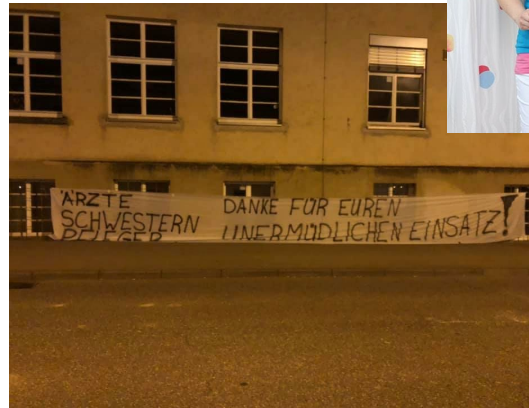 ÄRZTE
SCHWESTERN
PFLEGER
DANKE FÜR EUREN
UNERMÜDLICHEN EINSATZ!